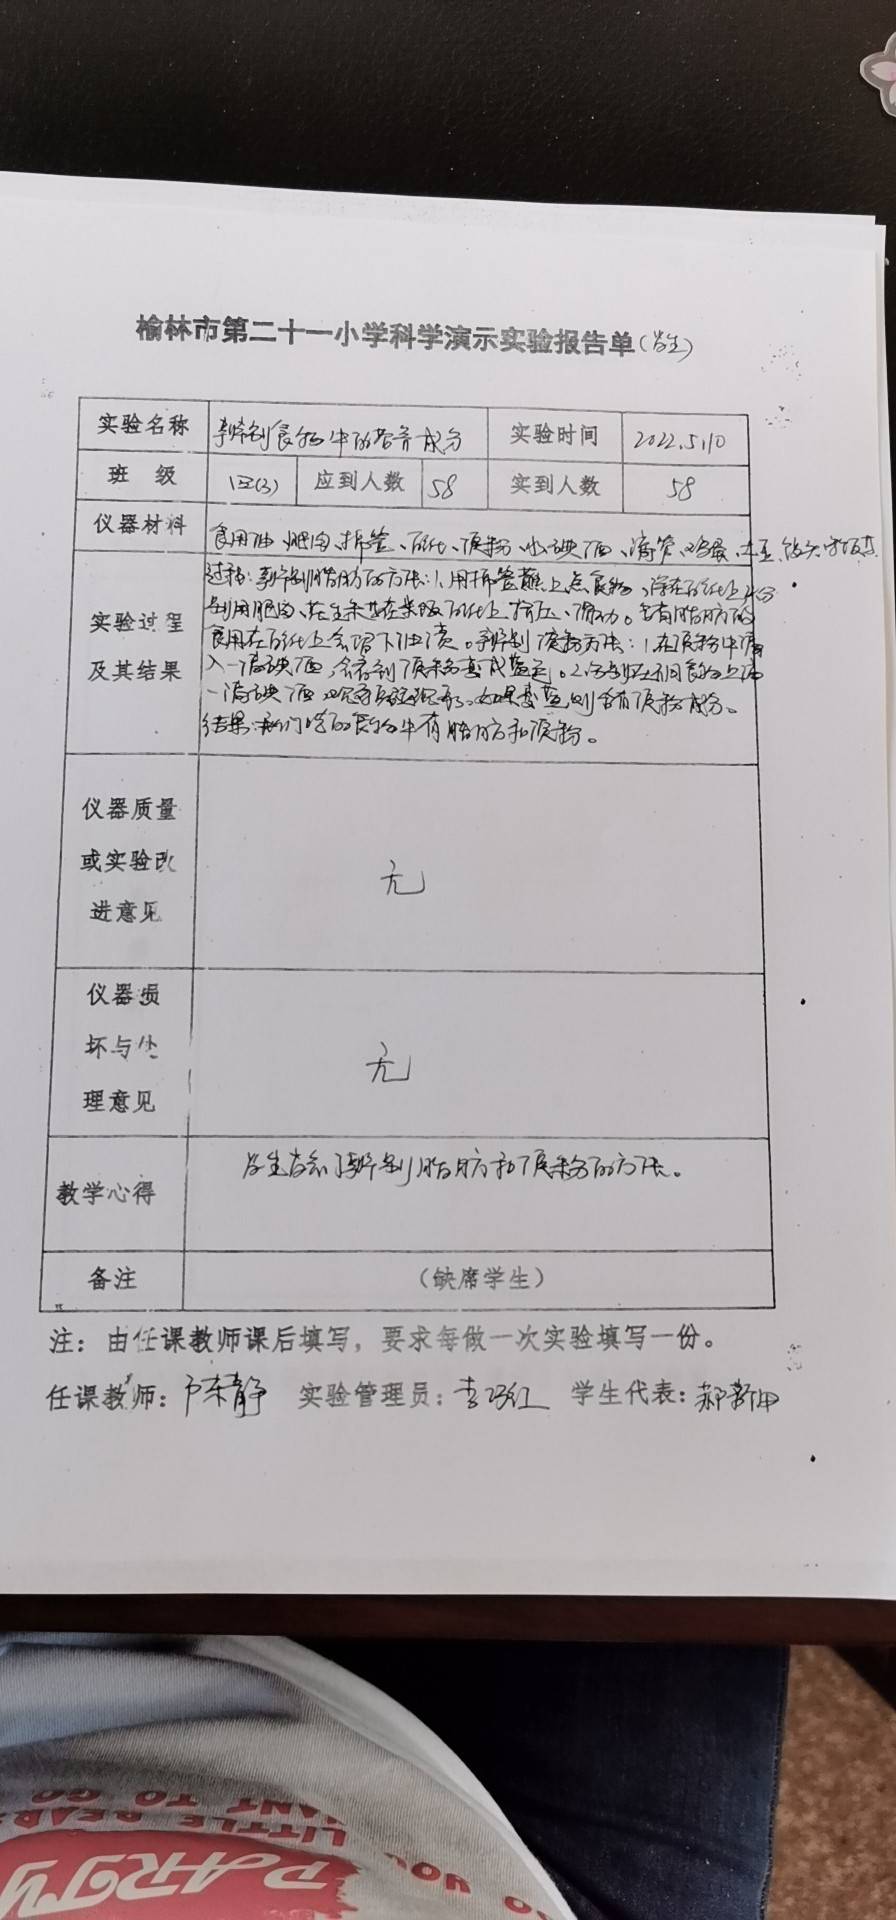 榆林市第二十一小学科学演示实验报告单(学生)
实验名称 辨别食物中的营养成分 实验时间 2022.5.10
班 级 四(3) 应到人数 58 实到人数 58
仪器材料 食用油、肥肉、牙签、白纸、淀粉、碘酒、滴管、鸡蛋、土豆、馒头、米饭
过程:辨别脂肪的方法:1.用牙签蘸上点食物,滴在白纸上,2.分
别用肥肉、花生米在白纸上挤压、滑动。含有脂肪的
食用在白纸上会留下油渍。辨别淀粉方法:1.在淀粉中滴
入一滴碘酒,会看到淀粉变成蓝色。2.分别在不同食物上滴
一滴碘酒,观察,如果变蓝,则含有淀粉成分。
结果:我们吃的食物中有脂肪和淀粉。
实验过程
及其结果
仪器质量
或实验改
进意见
无
仪器损
坏与处
理意见
无
教学心得 学生学会了辨别脂肪和淀粉的方法。
备注 (缺席学生)
注:由任课教师课后填写,要求每做一次实验填写一份。
任课教师:陈静 实验管理员:李巧红 学生代表:郝新
LITTLE BEAR
WANT TO GO
YOU
PARTY